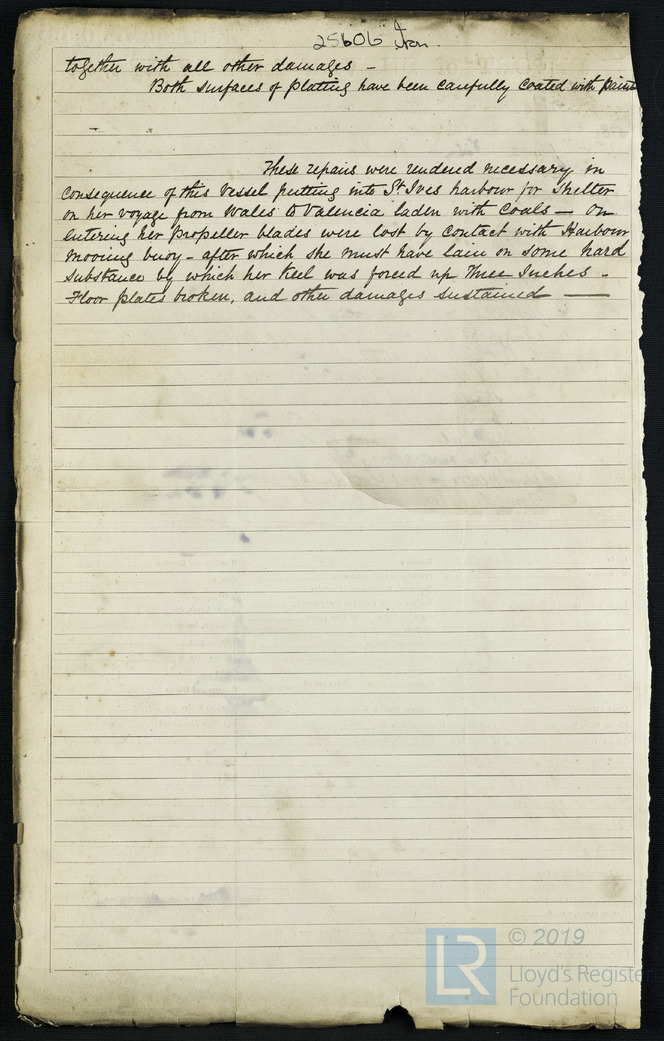 25606 Iron.
together with all other damages -
Both surfaces of plating have been carefully coated with paint
These repairs were rendered necessary in
consequence of this Vessel putting into St Ives harbour for Shelter
on her voyage from Wales to Valencia laden with Coals - On
entering her propeller blades were lost by contact with Harbour
mooring buoy - after which she must have lain on some hard
substance by which her keel was forced up three Inches -
Floor plates broken, and other damages sustained -
LR
© 2019
Lloyd's Register
Foundation